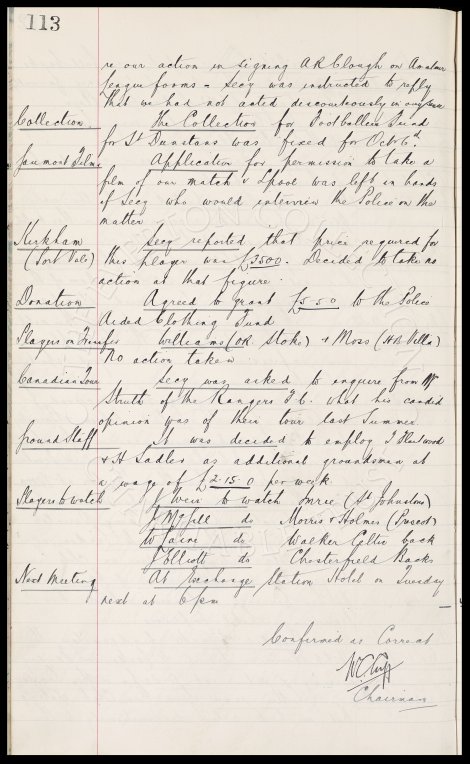 113
re our action in signing A R Clough on Amateur
league forms - Secy was instructed to reply
that we had not acted discourteously in any
Collection The Collection for Footballers Fund
for St Dunstans was fixed for Oct 6th.
Gaumont Films Application for permission to take a
film of our match v L'pool was left in hands
of Secy who would interview the Police on the
matter
Kirkham Secy reported that price required for
(Port Vale) this player was £3500. Decided to take no
action at that figure.
Donation Agreed to grant £5.5.0 to the Police
Aided Clothing Fund
Players on Transfer Williams (OR. Stoke) & Moss (HB Villa)
No action taken
Canadian Tour Secy was asked to enquire from W
Struth of the Rangers F.C. what his candid
opinion was of their tour last Summer.
Ground Staff It was decided to employ J Fleetwood
& H Sadler as additional groundsmen at
a wage of £2.15.0 per week
Players to watch J Weir to watch Imrie (St Johnstone)
J McGill do Morris & Holmes (Prescot)
W Paine do Walker Celtic back
J Elliott do Chesterfield Backs
Next Meeting At Exchange Station Hotel on Tuesday
next at 6 pm
Confirmed as Correct
W.C. Cuff
Chairman